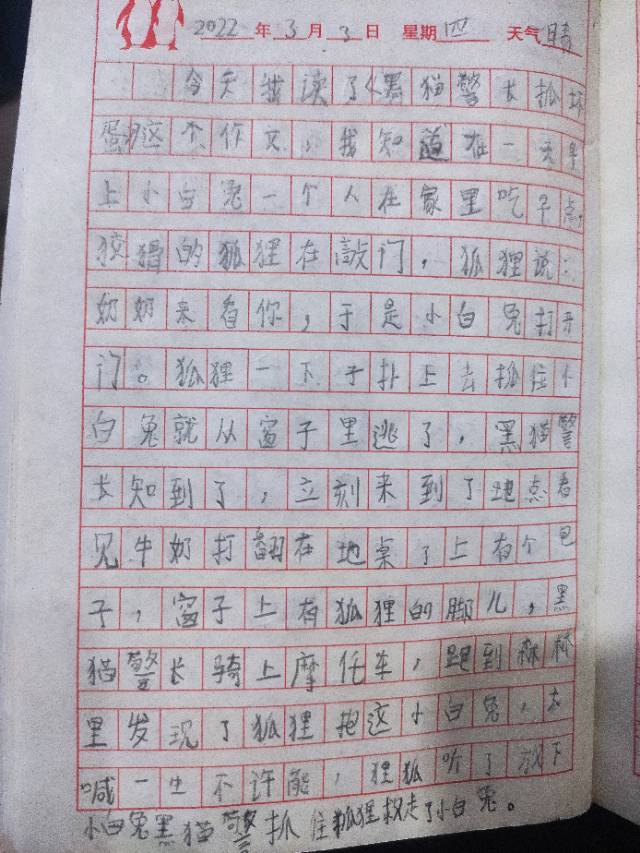 2022 年 3 月 3 日 星期 四 天气 晴
今天我读了《黑猫警长抓坏
蛋》这个作文，我知道在一天早
上小白兔一个人在家里吃早点，
狡猾的狐狸在敲门，狐狸说：
奶奶来看你，于是小白兔打开
门。狐狸一下子扑上去抓住小
白兔就从窗子里逃了，黑猫警
长知到了，立刻来到了地点看
见牛奶打翻在地桌了上有个包
子，窗子上有狐狸的脚儿，黑
猫警长骑上摩托车，跑到森林
里发现了狐狸抱这小白兔，大
喊一生不许能，狸狐听了放下
小白兔黑猫警抓住狐狸救走了小白兔。